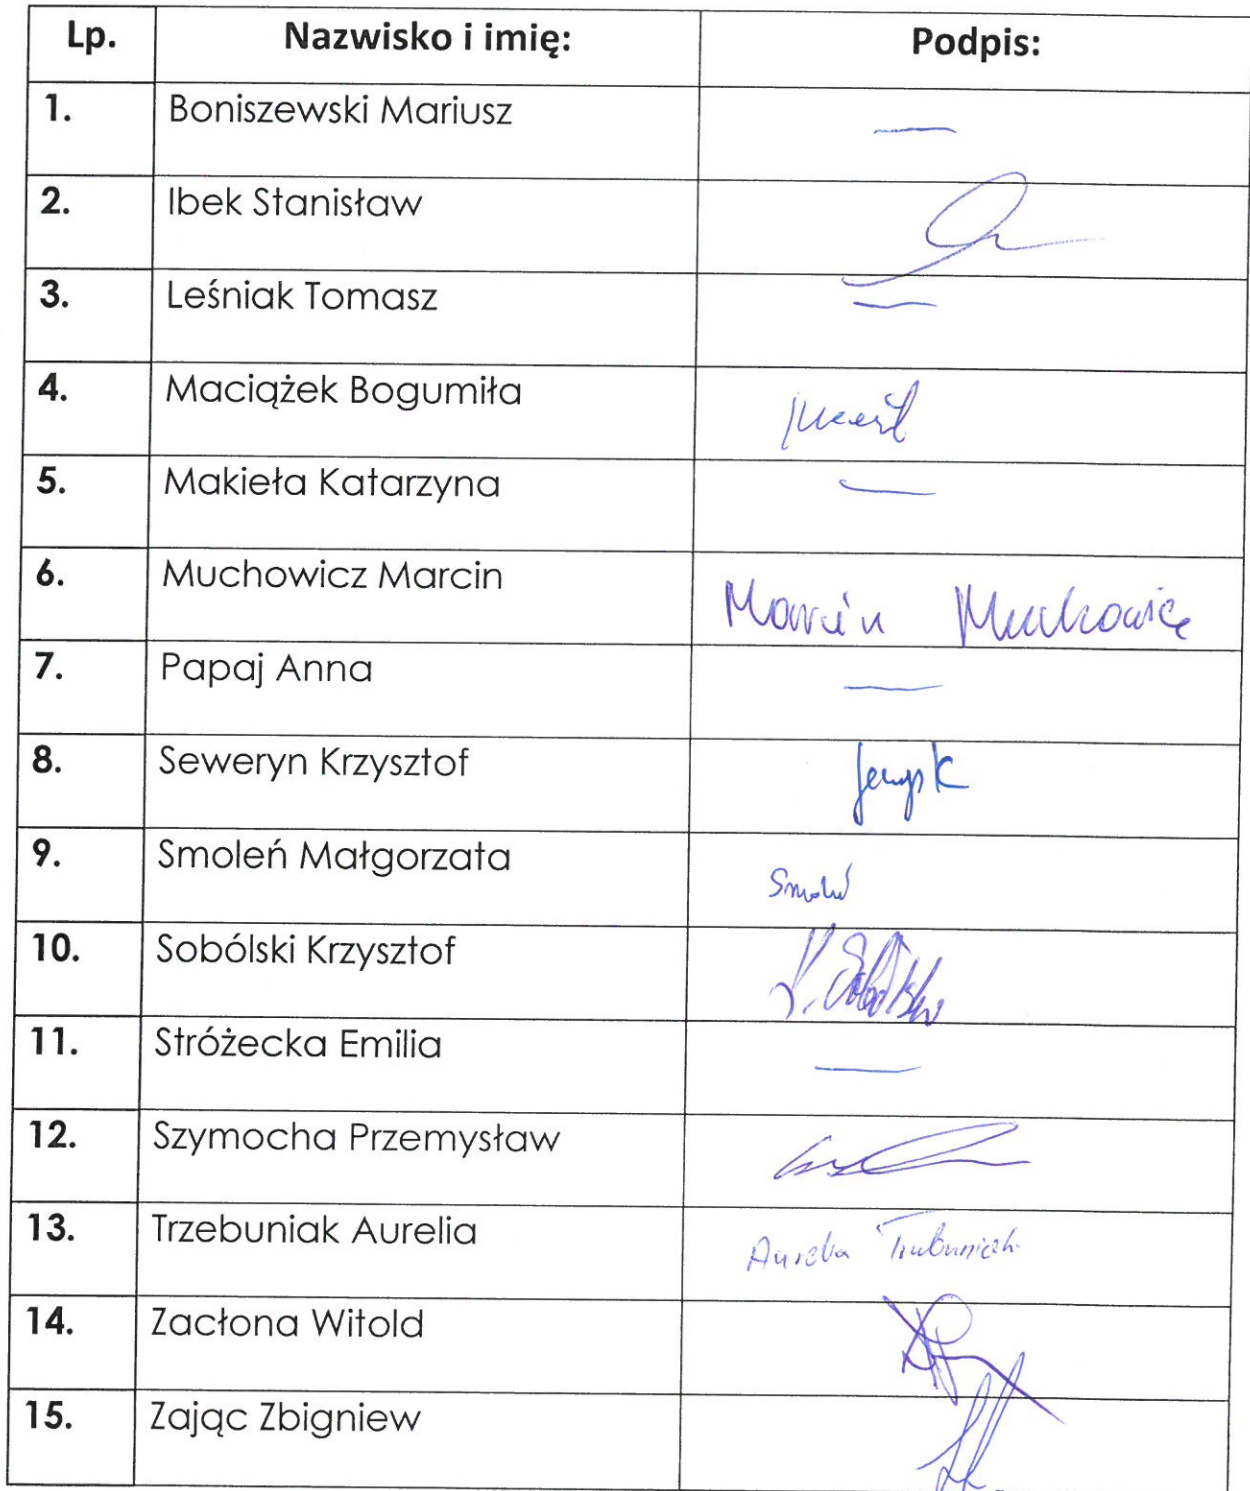 Lp. Nazwisko i imię: Podpis:
1. Boniszewski Mariusz —
2. Ibek Stanisław
3. Leśniak Tomasz —
4. Maciążek Bogumiła
5. Makieła Katarzyna —
6. Muchowicz Marcin Marcin Muchowicz
7. Papaj Anna —
8. Seweryn Krzysztof
9. Smoleń Małgorzata Smoleń
10. Sobólski Krzysztof K. Sobólski
11. Stróżecka Emilia —
12. Szymocha Przemysław
13. Trzebuniak Aurelia Aurelia Trzebuniak
14. Zacłona Witold
15. Zając Zbigniew